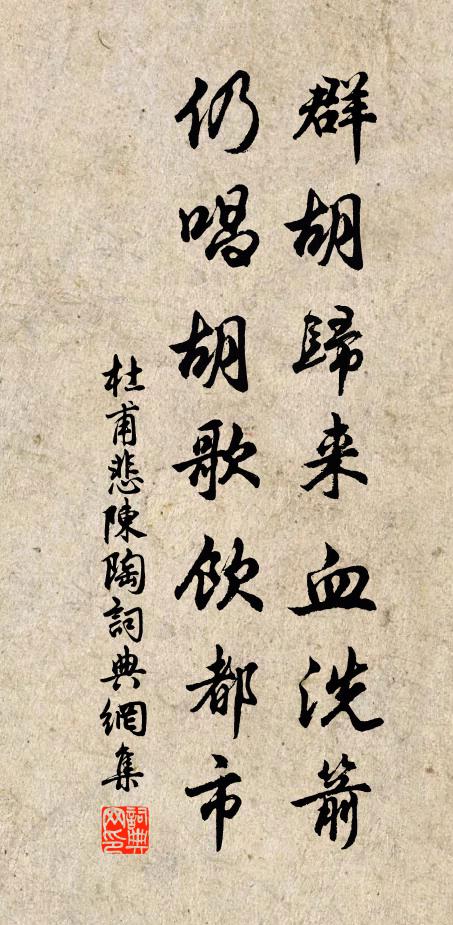 群胡歸来血洗箭
仍唱胡歌飲都市
杜甫悲陳陶詞典網集
詞典網印